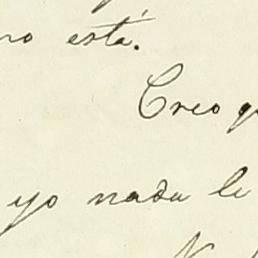 no está.
Creo q
yo nada le